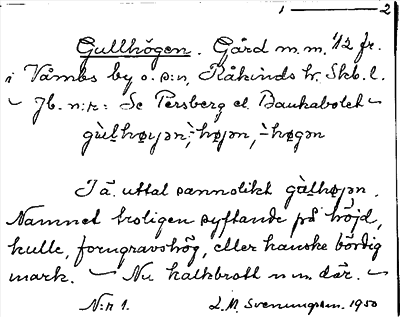 1 — 2
Gullhögen. Gård m.m. 1/2 fr.
i Våmbs by o. s:n, Kåkinds hr. Skb. l.
~ Jb. n:r: Se Persberg el. Baukabolet ~
gùl̥høyjən, -højən, -høgən
I ä. uttal sannolikt gùl̥højən.
Namnet troligen syftande på höjd,
kulle, forngravshög, eller kanske bördig
mark. ~ Nu kalkbrott m.m. där. ~
N:r 1. L.M. Svenungsson. 1950